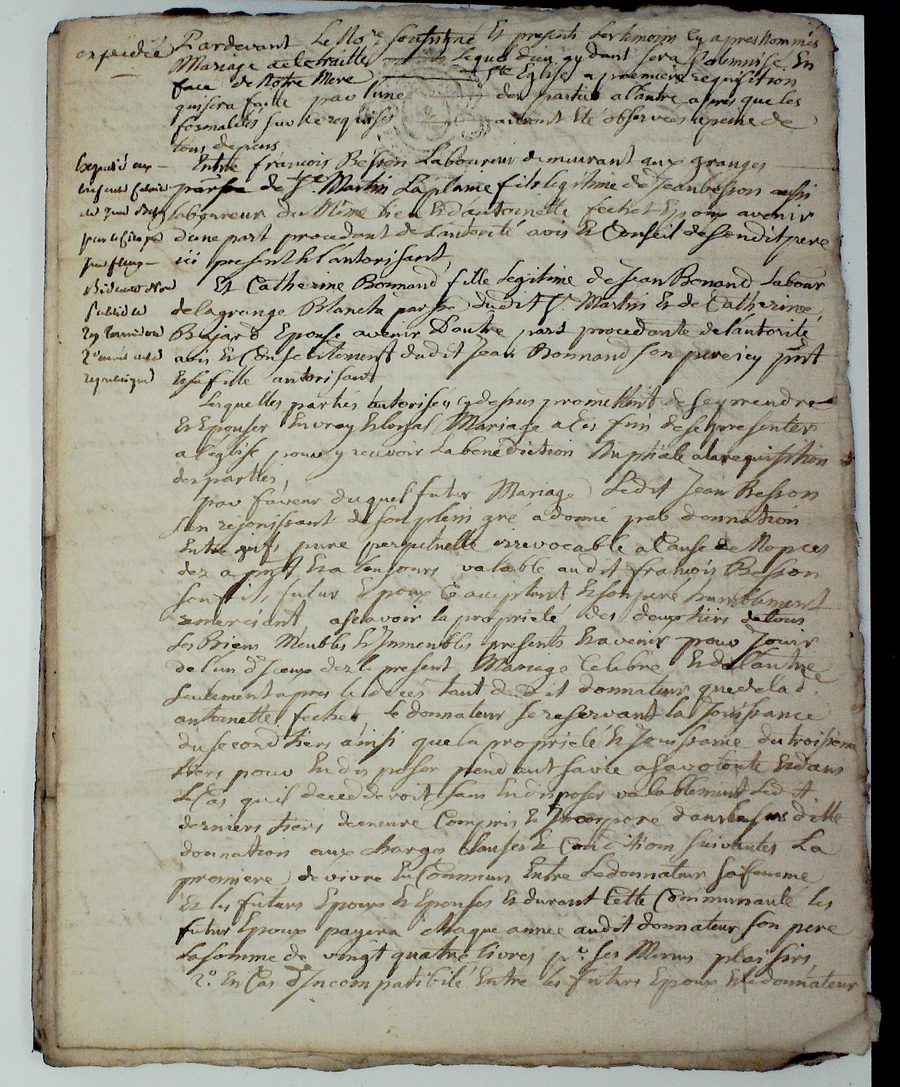 expediée
Pardevant Le No.re soussigné Et presents Les temoins Cy apres Nommés
Mariage a eté traitté Lequel dieu aydant sera solemnisé En
face de Notre Mere Ste Eglise a premiere requisition
qui sera faitte par l'une des parties a l'autre apres que les
formalités sur ce requises auront Eté observées a peine de
tous depens
Expedié aux
de Jean
publique
Entre francois Besson Laboureur demeurant aux granges
parsse de St Martin La plaine fils legitime de Jean besson aussi
laboureur du Même lieu Et d'antoinette fechet Epoux avenir
d'une part procedant de l'autorité avis Et Conseil de sondit pere
ici present Et l'autorisant
Et Catherine Bonnand fille Legitime de Jean Bonand Labour
de la grange Blanche parsse dudit St Martin Et de Catherine
Bujard Epouse avenir D'autre part procedante de l'autorité
avis Et Consentement dudit Jean Bonnand son pere icy prnt
Et sa fille autorisant
Lesquelles parties autorisées cy dessus promettent de se prendre
Et Epouser En vray Et loyal Mariage a les fins de se presenter
a l'eglise pour y recevoir La benediction Nuptiale a la requisition
des parties
par faveur duquel futur Mariage Ledit Jean Besson
s'en rejouissant de son plein gré a donné par donnation
Entre vifs pure perpetuelle irrevocable a Cause de Nopces
dez a prnt Et a toujours valable audit francois Besson
son fils futur Epoux Acceptant Et son pere humblement
remerciant a scavoir la proprieté des deux tiers de tous
Les Biens Meubles Et Immeubles presents Et avenir pour Jouir
de l'un d'Iceux dez le present Mariage Celebré Et de l'autre
seulement apres le deces tant dudit donnateur que de lad.
antoinette fechet, le donnateur se reservant la Jouissance
du second tiers ainsi que la proprieté Et Jouissance du troisieme
tiers pour En disposer pendant sa vie a sa volonté Et dans
Le Cas qu'il decedderoit sans En disposer valablement Ledit
dernier tiers demeure Compris Et Incorporé dans la susditte
donnation aux charges Clauses Et Conditions suivantes La
premiere de vivre En Commun Entre Le donnateur sa femme
Et les futurs Epoux Et Epouses Et durant Cette Communauté les
futur Epoux payera chaque année audit donnateur son pere
La somme de vingt quatre livres pr. ses Menus plaisirs
2.o En Cas d'Incompatibilité Entre les futurs Epoux Et le donnateur